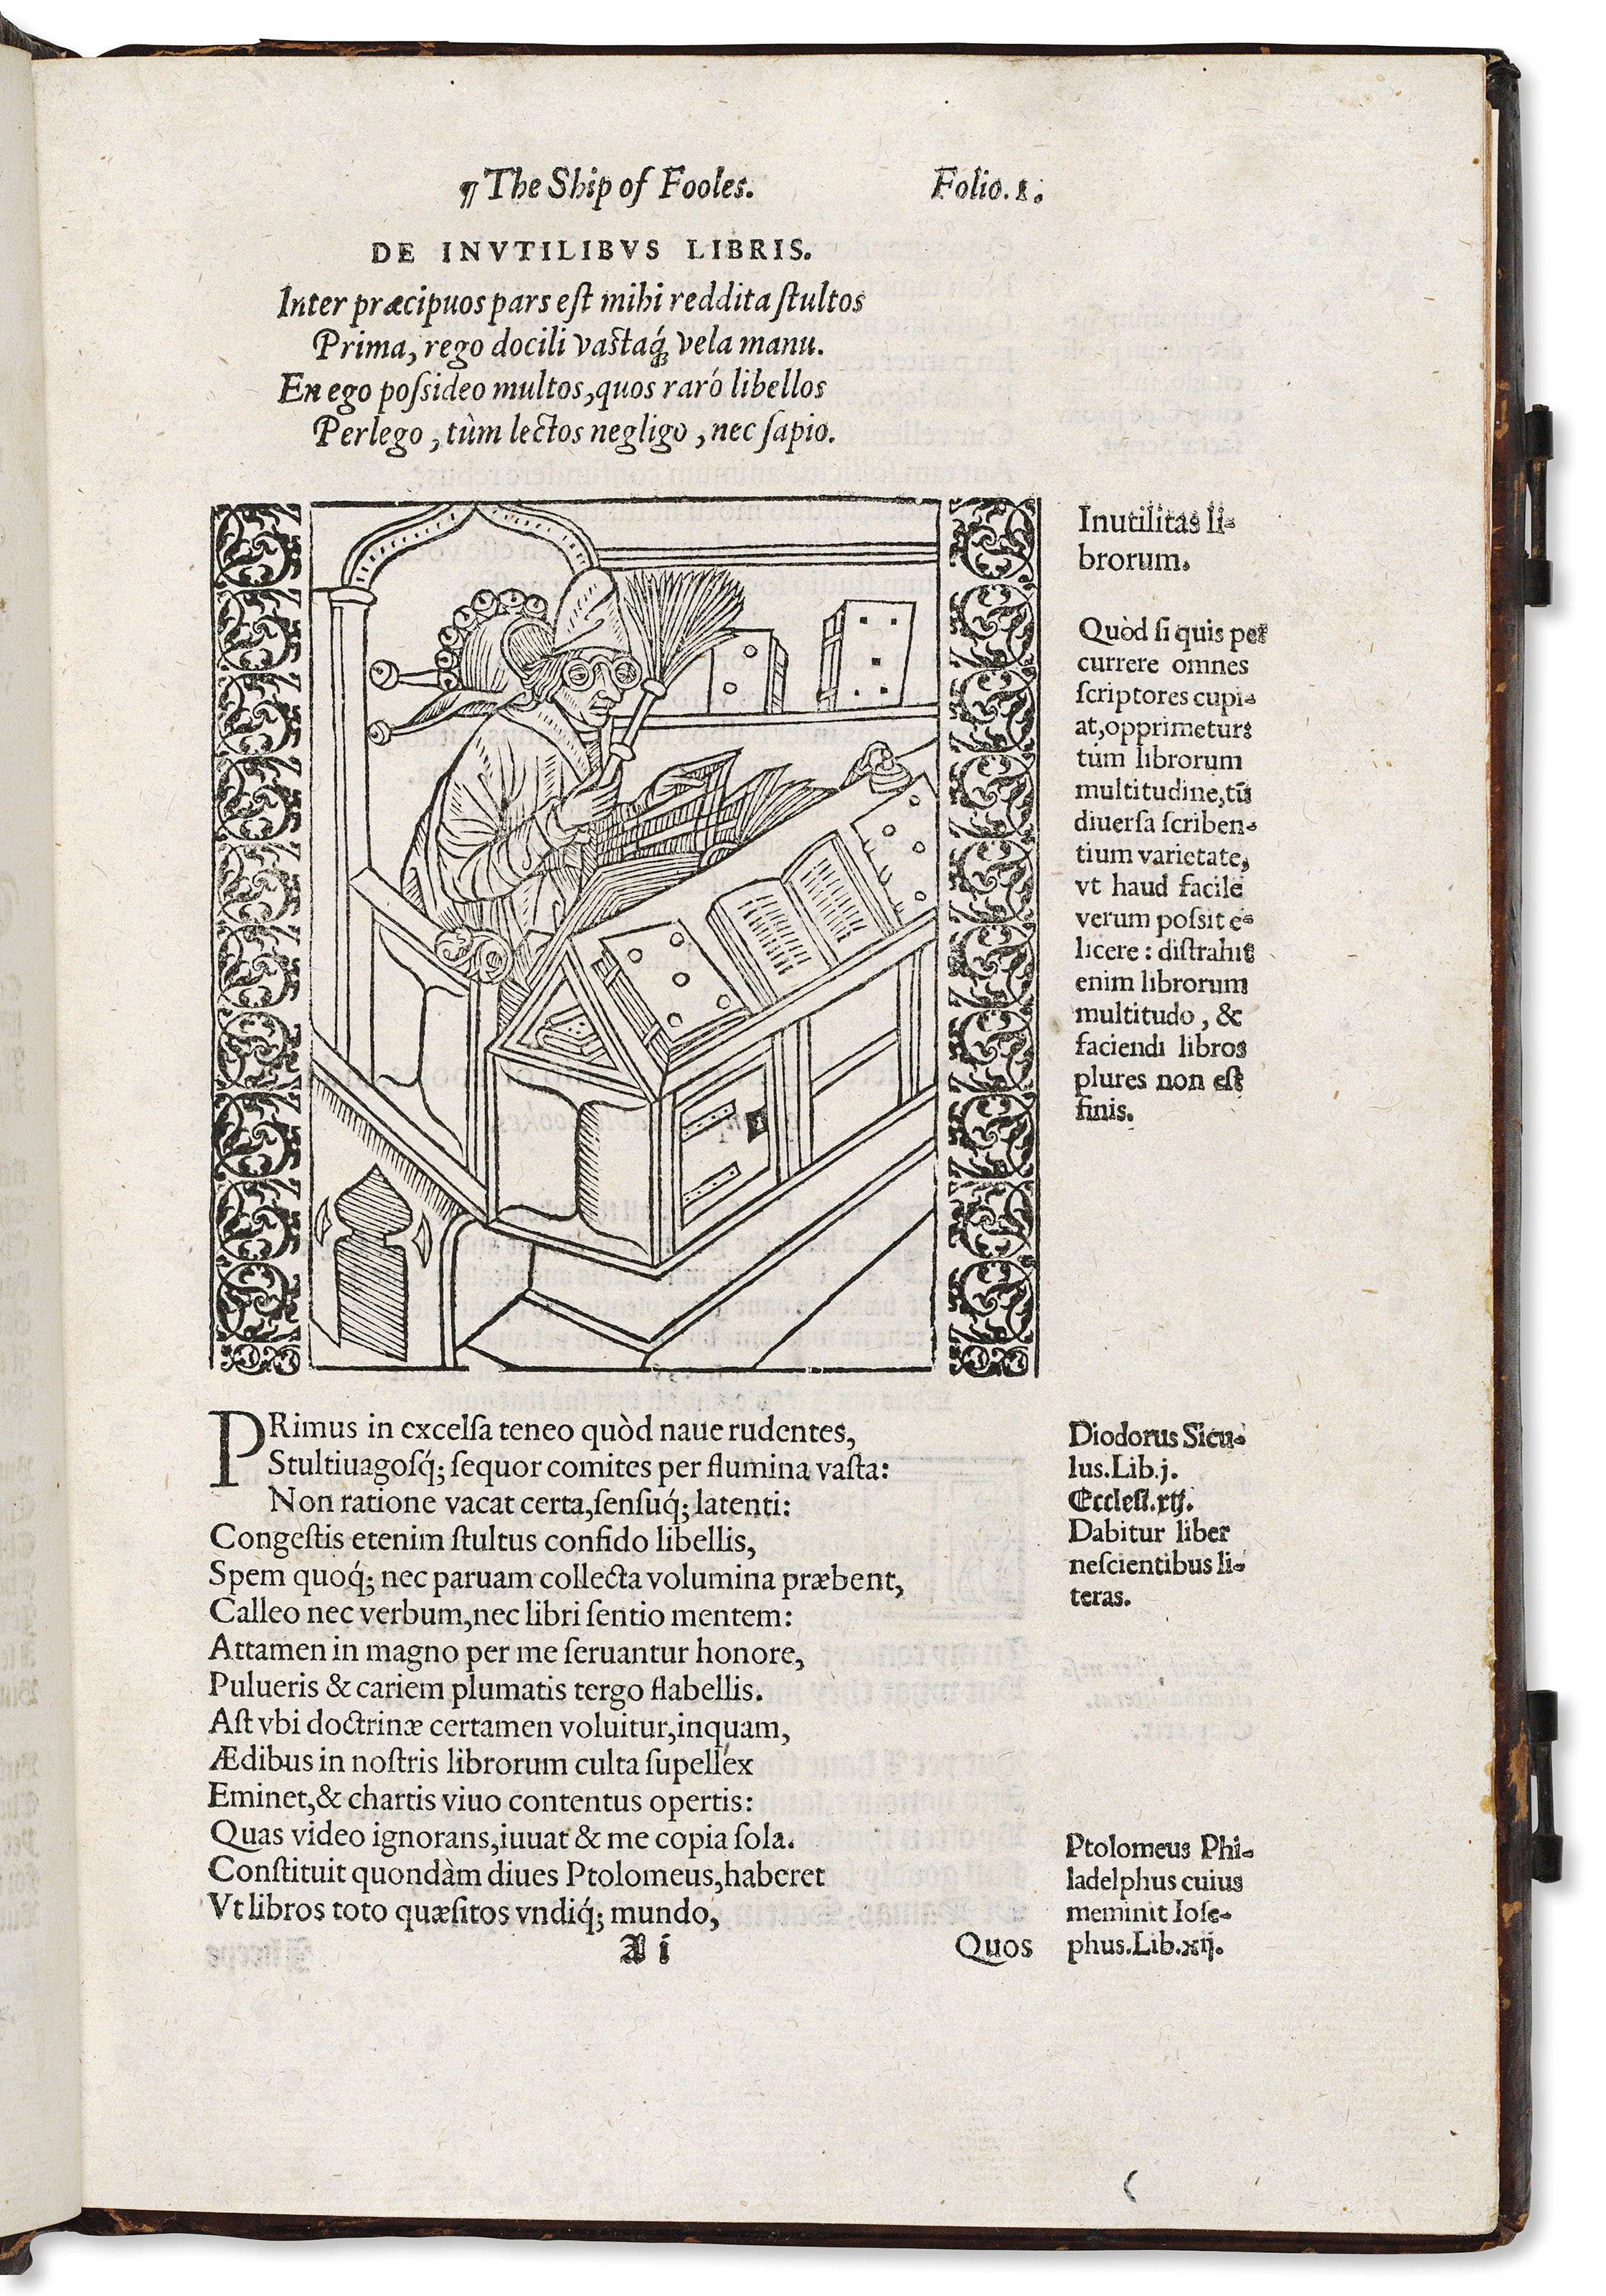 ¶ The Ship of Fooles. Folio. 1.
DE INVTILIBVS LIBRIS.
Inter præcipuos pars eſt mihi reddita ſtultos
Prima, rego docili vaſtaq́; vela manu.
En ego poſsideo multos, quos raró libellos
Perlego, tùm lectos negligo, nec ſapio.
Inutilitas li-
brorum.
Quòd ſi quis per
currere omnes
ſcriptores cupi-
at, opprimetur:
tùm librorum
multitudine, tū
diuerſa ſcriben-
tium varietate,
vt haud facile
verum poſsit e-
licere: diſtrahit
enim librorum
multitudo, &
faciendi libros
plures non eſt
finis.
PRimus in excelſa teneo quòd naue rudentes,
Stultiuagoſq́; ſequor comites per flumina vaſta:
Non ratione vacat certa, ſenſuq́; latenti:
Congeſtis etenim ſtultus confido libellis,
Spem quoq́; nec paruam collecta volumina præbent,
Calleo nec verbum, nec libri ſentio mentem:
Attamen in magno per me ſeruantur honore,
Pulueris & cariem plumatis tergo flabellis.
Aſt vbi doctrinæ certamen voluitur, inquam,
Ædibus in noſtris librorum culta ſupelléx
Eminet, & chartis viuo contentus opertis:
Quas video ignorans, iuuat & me copia ſola.
Conſtituit quondàm diues Ptolomeus, haberet
Vt libros toto quæſitos vndiq́; mundo,
Diodorus Sicu-
lus. Lib. j.
Eccleſi. xij.
Dabitur liber
neſcientibus li-
teras.
Ptolomeus Phi-
ladelphus cuius
meminit Ioſe-
phus. Lib. xij.
A i Quos